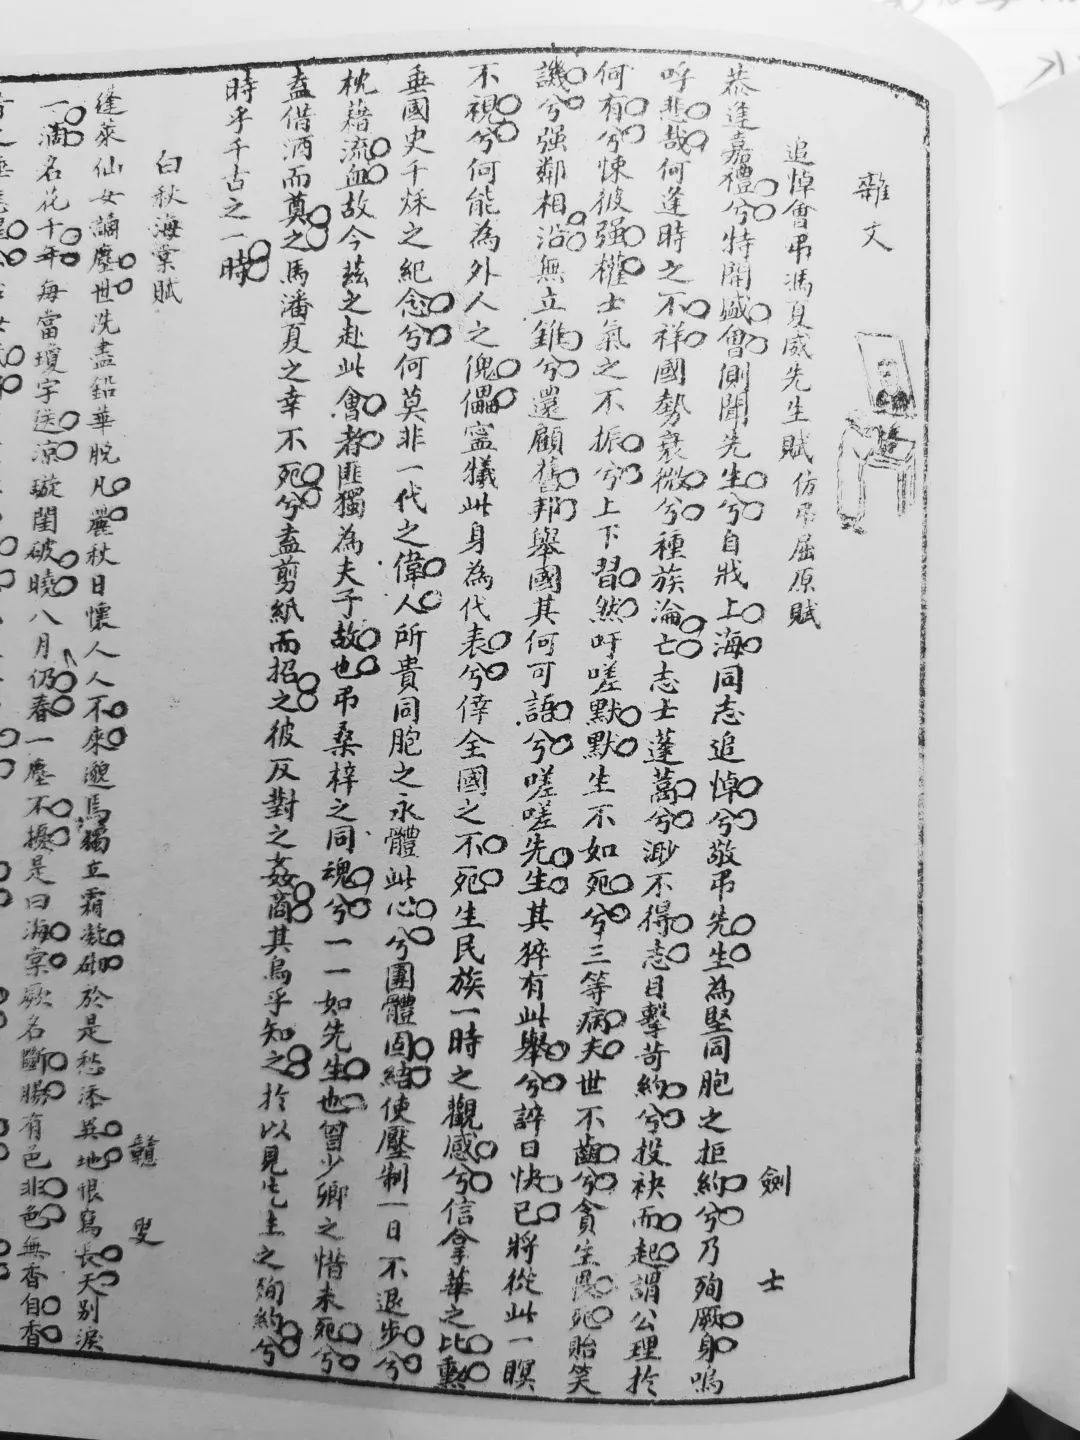 雜文
追悼會弔馮夏威先生賦仿弔屈原賦
劍士
恭逢嘉禮兮特開盛會側聞先生兮自戕上海同志追悼兮敬弔先生為堅同胞之拒約兮乃殉厥身嗚
呼悲哉何逢時之不祥國勢衰微兮種族淪亡志士蓬蒿兮渺不得志目擊苛約兮投袂而起謂公理於
何有兮悚彼强權士氣之不振兮上下習然吁嗟默默生不如死兮三等病夫世不齒兮貪生畏死貽笑
譏兮强鄰相沿無立錐兮還顧舊邦舉國其何可語兮嗟嗟先生其猝有此舉兮誶曰快已將從此一瞑
不視兮何能為外人之傀儡寧犧此身為代表兮倖全國之不死生民族一時之觀感兮信拿華之比勳
垂國史千秌之紀念兮何莫非一代之偉人所貴同胞之永體此心兮團體固結使壓制一日不退步兮
枕藉流血故今茲之赴此會者匪獨為夫子故也弔桑梓之同魂兮一一如先生也曾少卿之惜未死兮
盍借酒而奠之馬潘夏之幸不死兮盍剪紙而招之彼反對之姦商其烏乎知之於以見先生之殉約兮
時乎千古之一時
白秋海棠賦
贛叟
蓬萊仙女謫塵世洗盡鉛華脫凡麗秋日懷人人不來邈焉獨立霜凝砌於是愁添異地恨寫長天别淚
一滴名花十年每當瓊宇送凉璇閨破曉八月仍春一塵不擾是曰海棠厥名斷腸有色非色無香自香